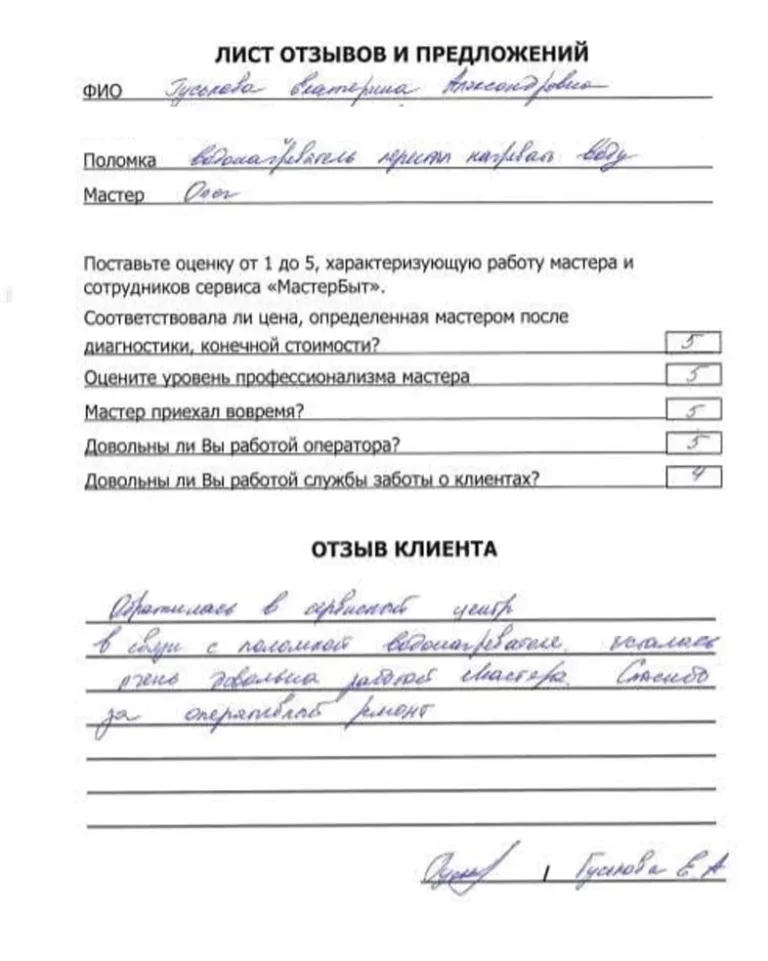 ЛИСТ ОТЗЫВОВ И ПРЕДЛОЖЕНИЙ
ФИО Гуськова Екатерина Александровна
Поломка водонагреватель перестал нагревать воду
Мастер Олег
Поставьте оценку от 1 до 5, характеризующую работу мастера и
сотрудников сервиса «МастерБыт».
Соответствовала ли цена, определенная мастером после
диагностики, конечной стоимости? 5
Оцените уровень профессионализма мастера 5
Мастер приехал вовремя? 5
Довольны ли Вы работой оператора? 5
Довольны ли Вы работой службы заботы о клиентах? 4
ОТЗЫВ КЛИЕНТА
Обратилась в сервисный центр
в связи с поломкой водонагревателе. осталась
очень довольна работой мастера. Спасибо
за оперативный ремонт
/ Гуськова Е.А